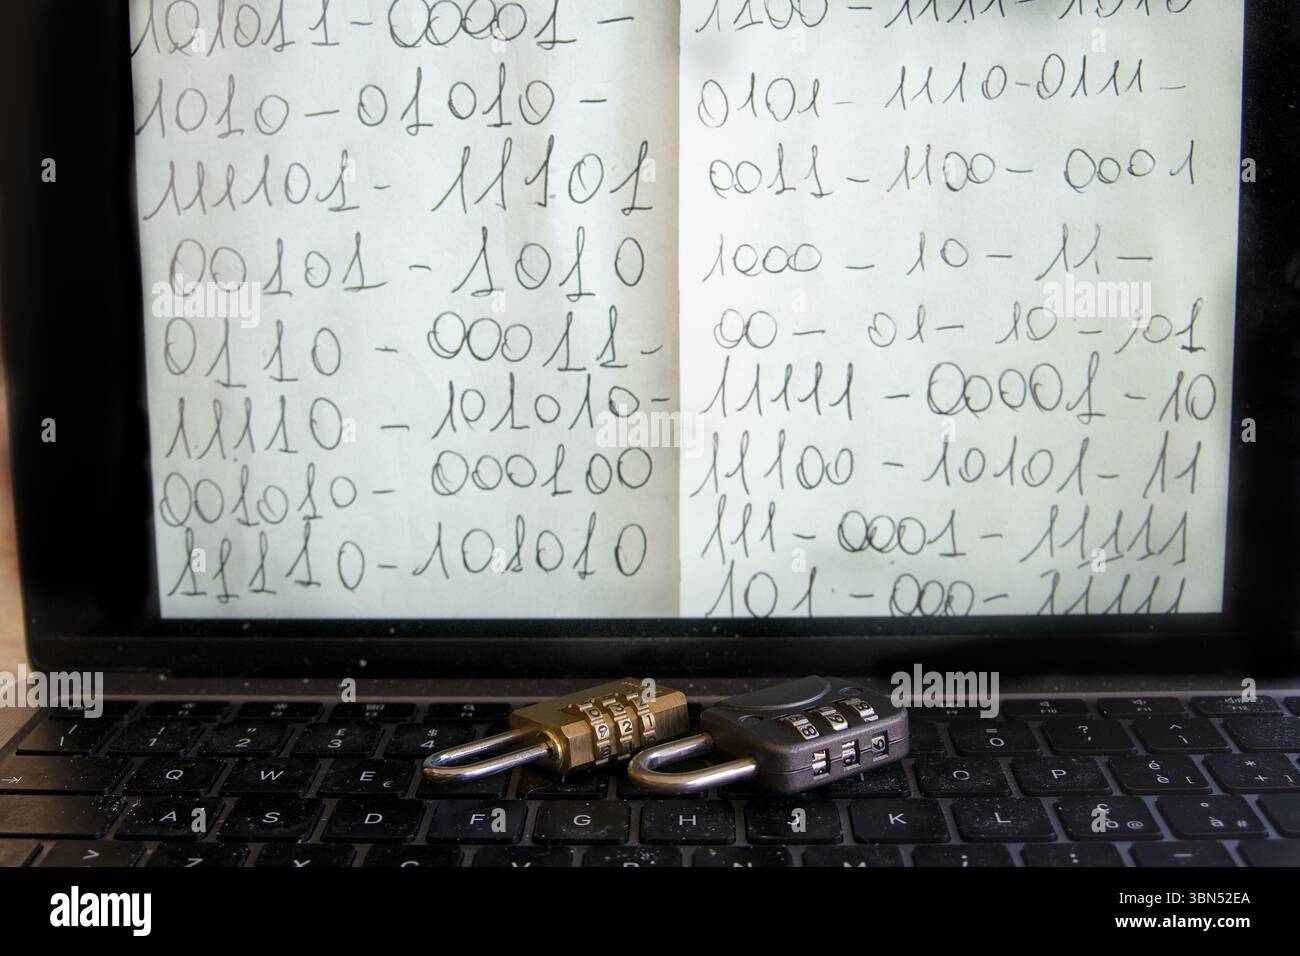 101011-00001-
1010-01010-
111101-11101
00101-1010
0110-00011-
11110-101010-
001010-000100
11110-101010
1100-1111-1010
0101-1110-0111-
0011-1100-0001
1000-10-11-
00-01-10-101
11111-00001-10
11100-10101-11
111-0001-11111
101-000-11111
Q W E € O P é è ì * +
A S D F G H J K L ç ò @ ° à #
alamy
Image ID: 3BN52EA
www.alamy.com